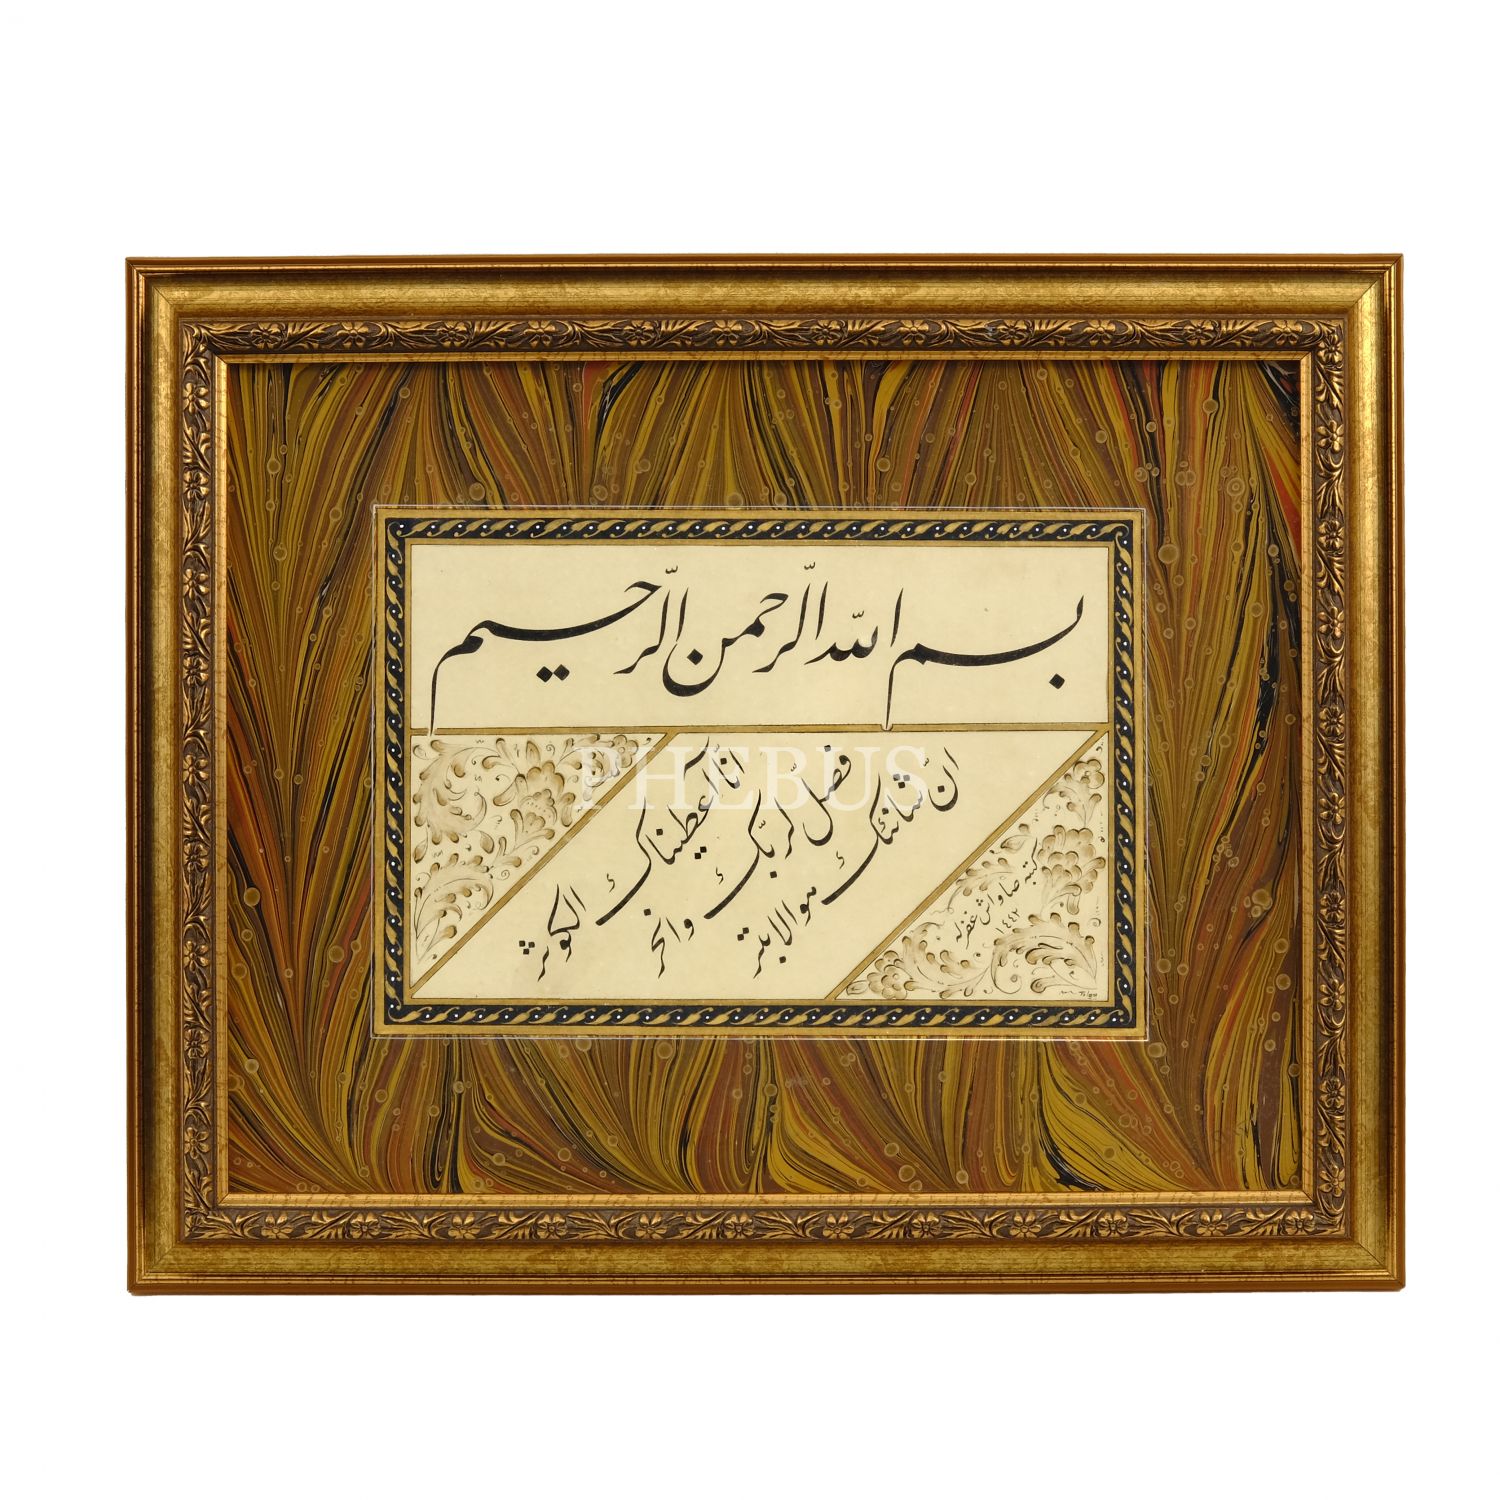 بسم الله الرّحمن الرّحيم
انّا اعطيناك الكوثر
فصلّ لربّك وانحر
انّ شانئك هو الابتر
كتبه صاواش غفر له
١٤٤٢
PHEBUS